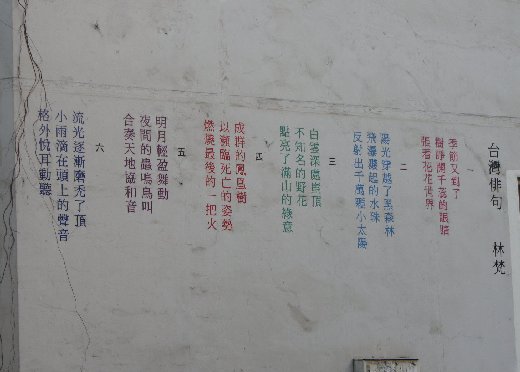 台灣俳句 林梵
一
季節又到了
樹睜開千萬的眼睛
張看花花世界
二
陽光穿越了黑森林
飛瀑濺起的水珠
反射出千萬顆小太陽
三
白雲深處崖頂
不知名的野花
點亮了滿山的綠意
四
成群的鳳凰樹
以瀕臨死亡的姿勢
燃燒最後的一把火
五
明月輕盈舞動
夜間的蟲鳴鳥叫
合奏天地協和音
六
流光逐漸磨禿了頂
小雨滴在頭上的聲音
格外悅耳動聽